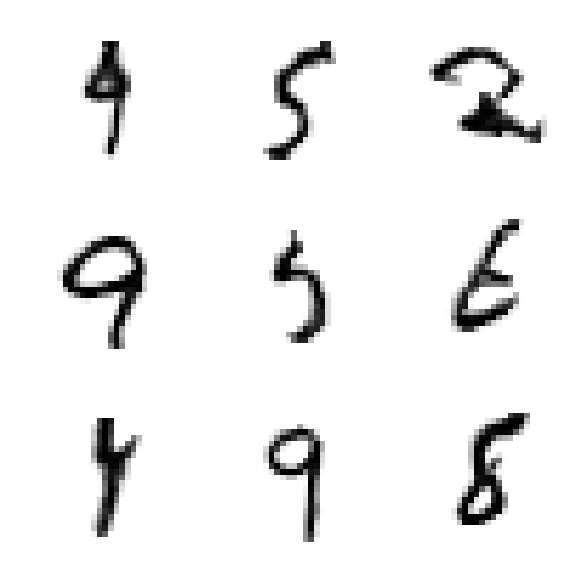 9 5 2
9 5 6
4 9 8